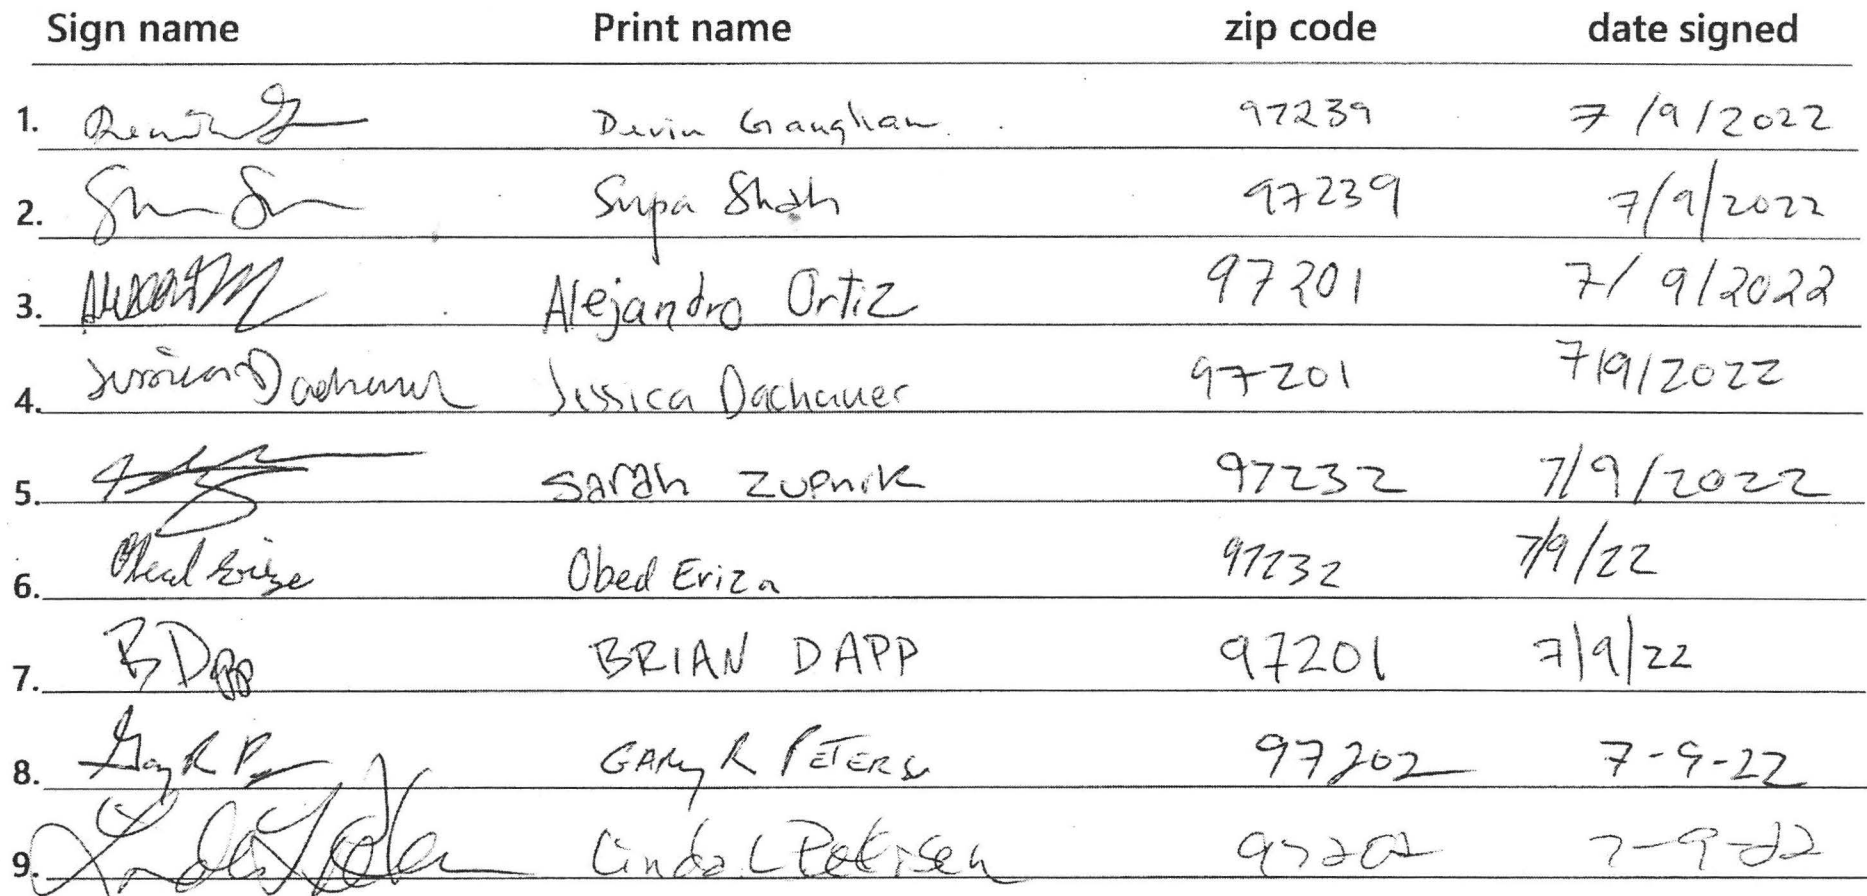 Sign name Print name zip code date signed
1. Devin Gaughan 97239 7/9/2022
2. Supa Shah 97239 7/9/2022
3. Alejandro Ortiz 97201 7/9/2022
4. Jessica Dachauer Jessica Dachauer 97201 7/9/2022
5. Sarah Zupnik 97232 7/9/2022
6. Obed Eriza Obed Eriza 97232 7/9/22
7. B Dapp BRIAN DAPP 97201 7/9/22
8. Gary R P GARY R PETERS 97202 7-9-22
9. Linda L Petersen 97202 7-9-22